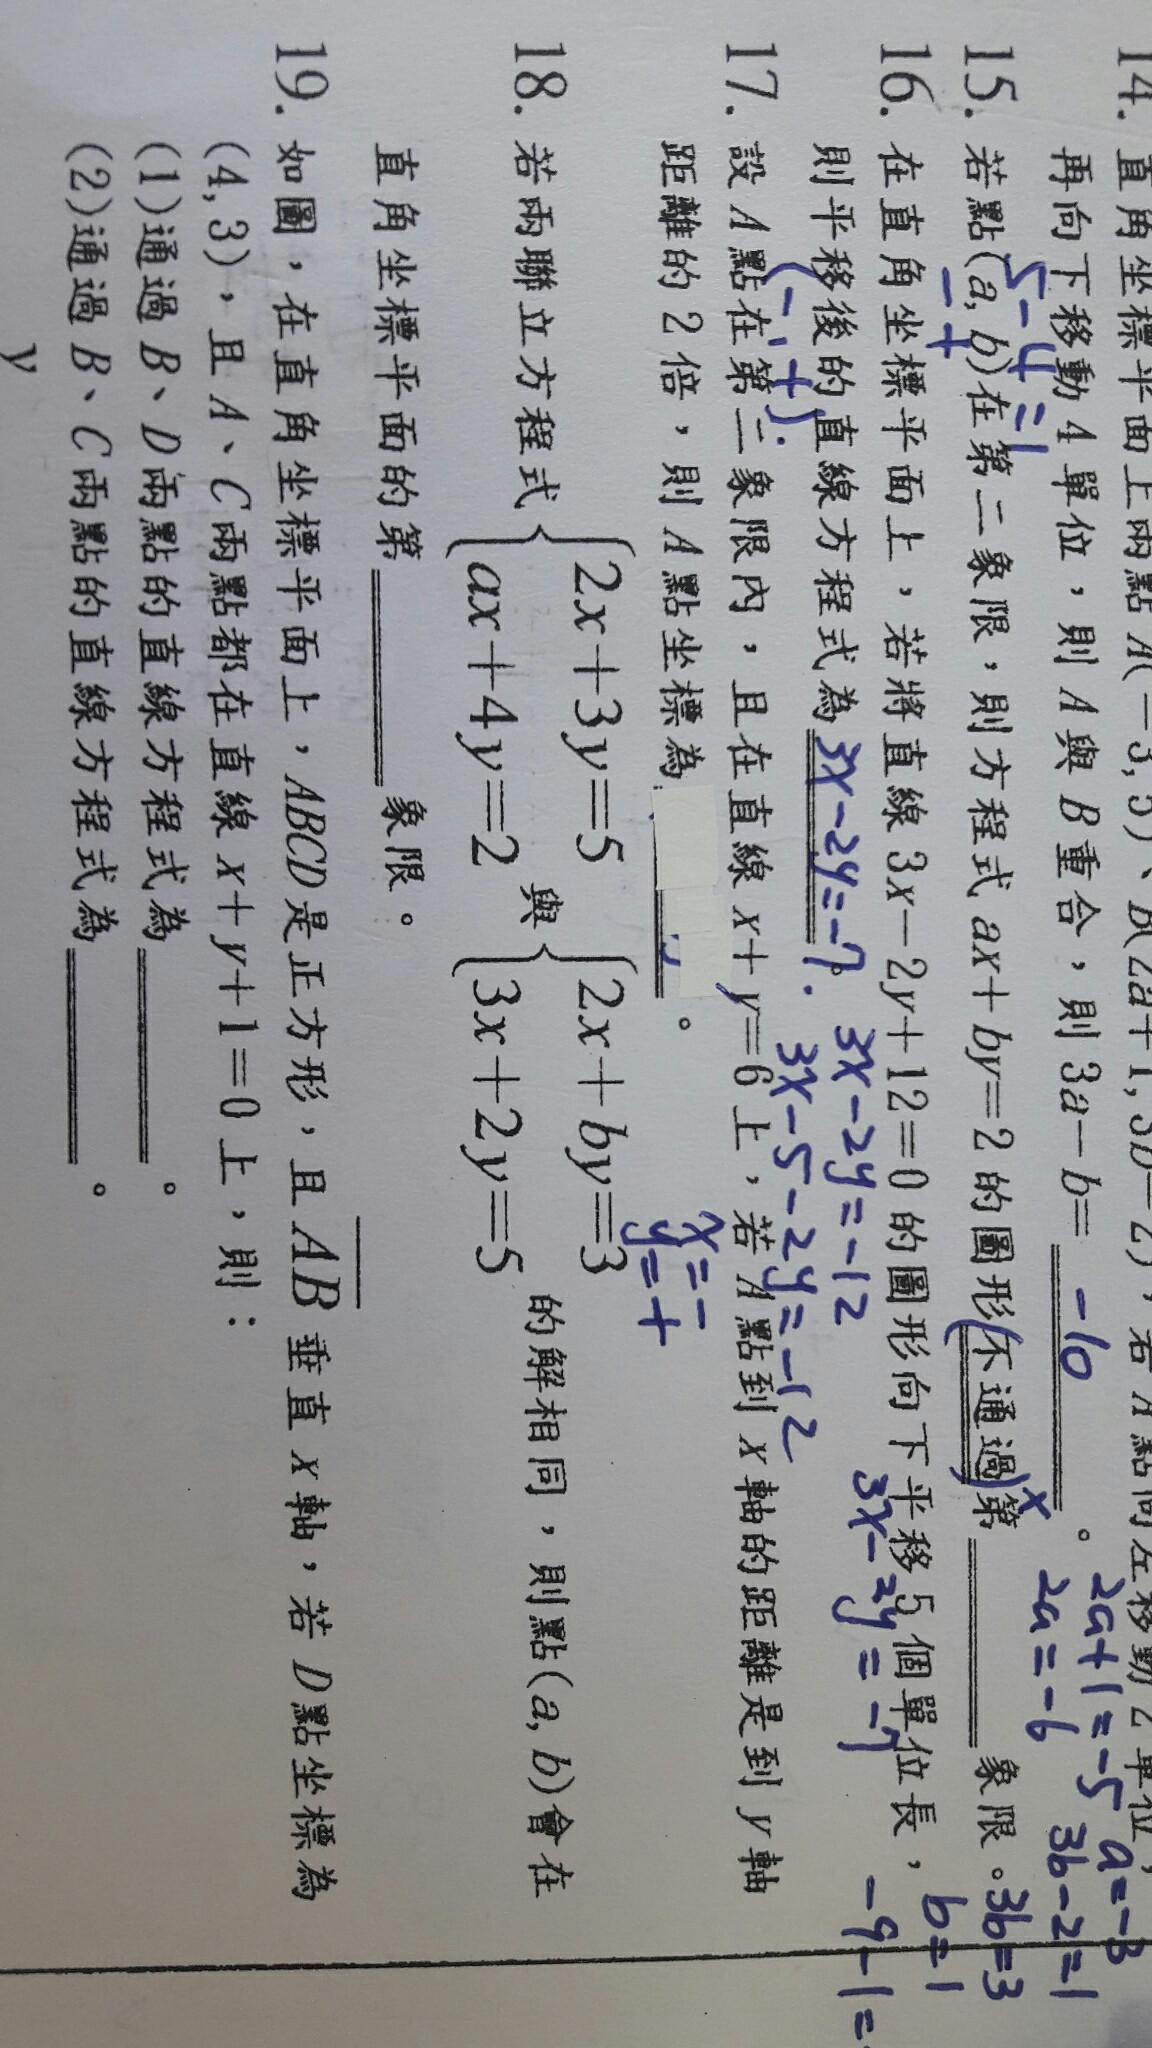 14. 直角坐標平面上兩點 A(-3, 5)、B(2a+1, 3b-2)，若 A 點向左移動 2 單位，
再向下移動 4 單位，則 A 與 B 重合，則 3a-b= -10 。
2a+1=-5 a=-3
2a=-6 3b-2=1
5-4=1
15. 若點(a, b)在第二象限，則方程式 ax+by=2 的圖形(不通過)第 象限。
- +
x
3b=3
b=1
16. 在直角坐標平面上，若將直線 3x-2y+12=0 的圖形向下平移 5 個單位長，
則平移後的直線方程式為 3x-2y=-7 。
3x-2y=-12
3x-2y=-7
-9-1=
3x-5-2y=-12
(-,+)
17. 設 A 點在第二象限內，且在直線 x+y=6 上，若 A 點到 x 軸的距離是到 y 軸
距離的 2 倍，則 A 點坐標為 。
x=-
y=+
18. 若兩聯立方程式 {2x+3y=5 與 {2x+by=3 的解相同，則點(a, b)會在
ax+4y=2 3x+2y=5
直角坐標平面的第 象限。
19. 如圖，在直角坐標平面上，ABCD 是正方形，且 AB 垂直 x 軸，若 D 點坐標為
(4, 3)，且 A、C 兩點都在直線 x+y+1=0 上，則：
(1)通過 B、D 兩點的直線方程式為 。
(2)通過 B、C 兩點的直線方程式為 。
y